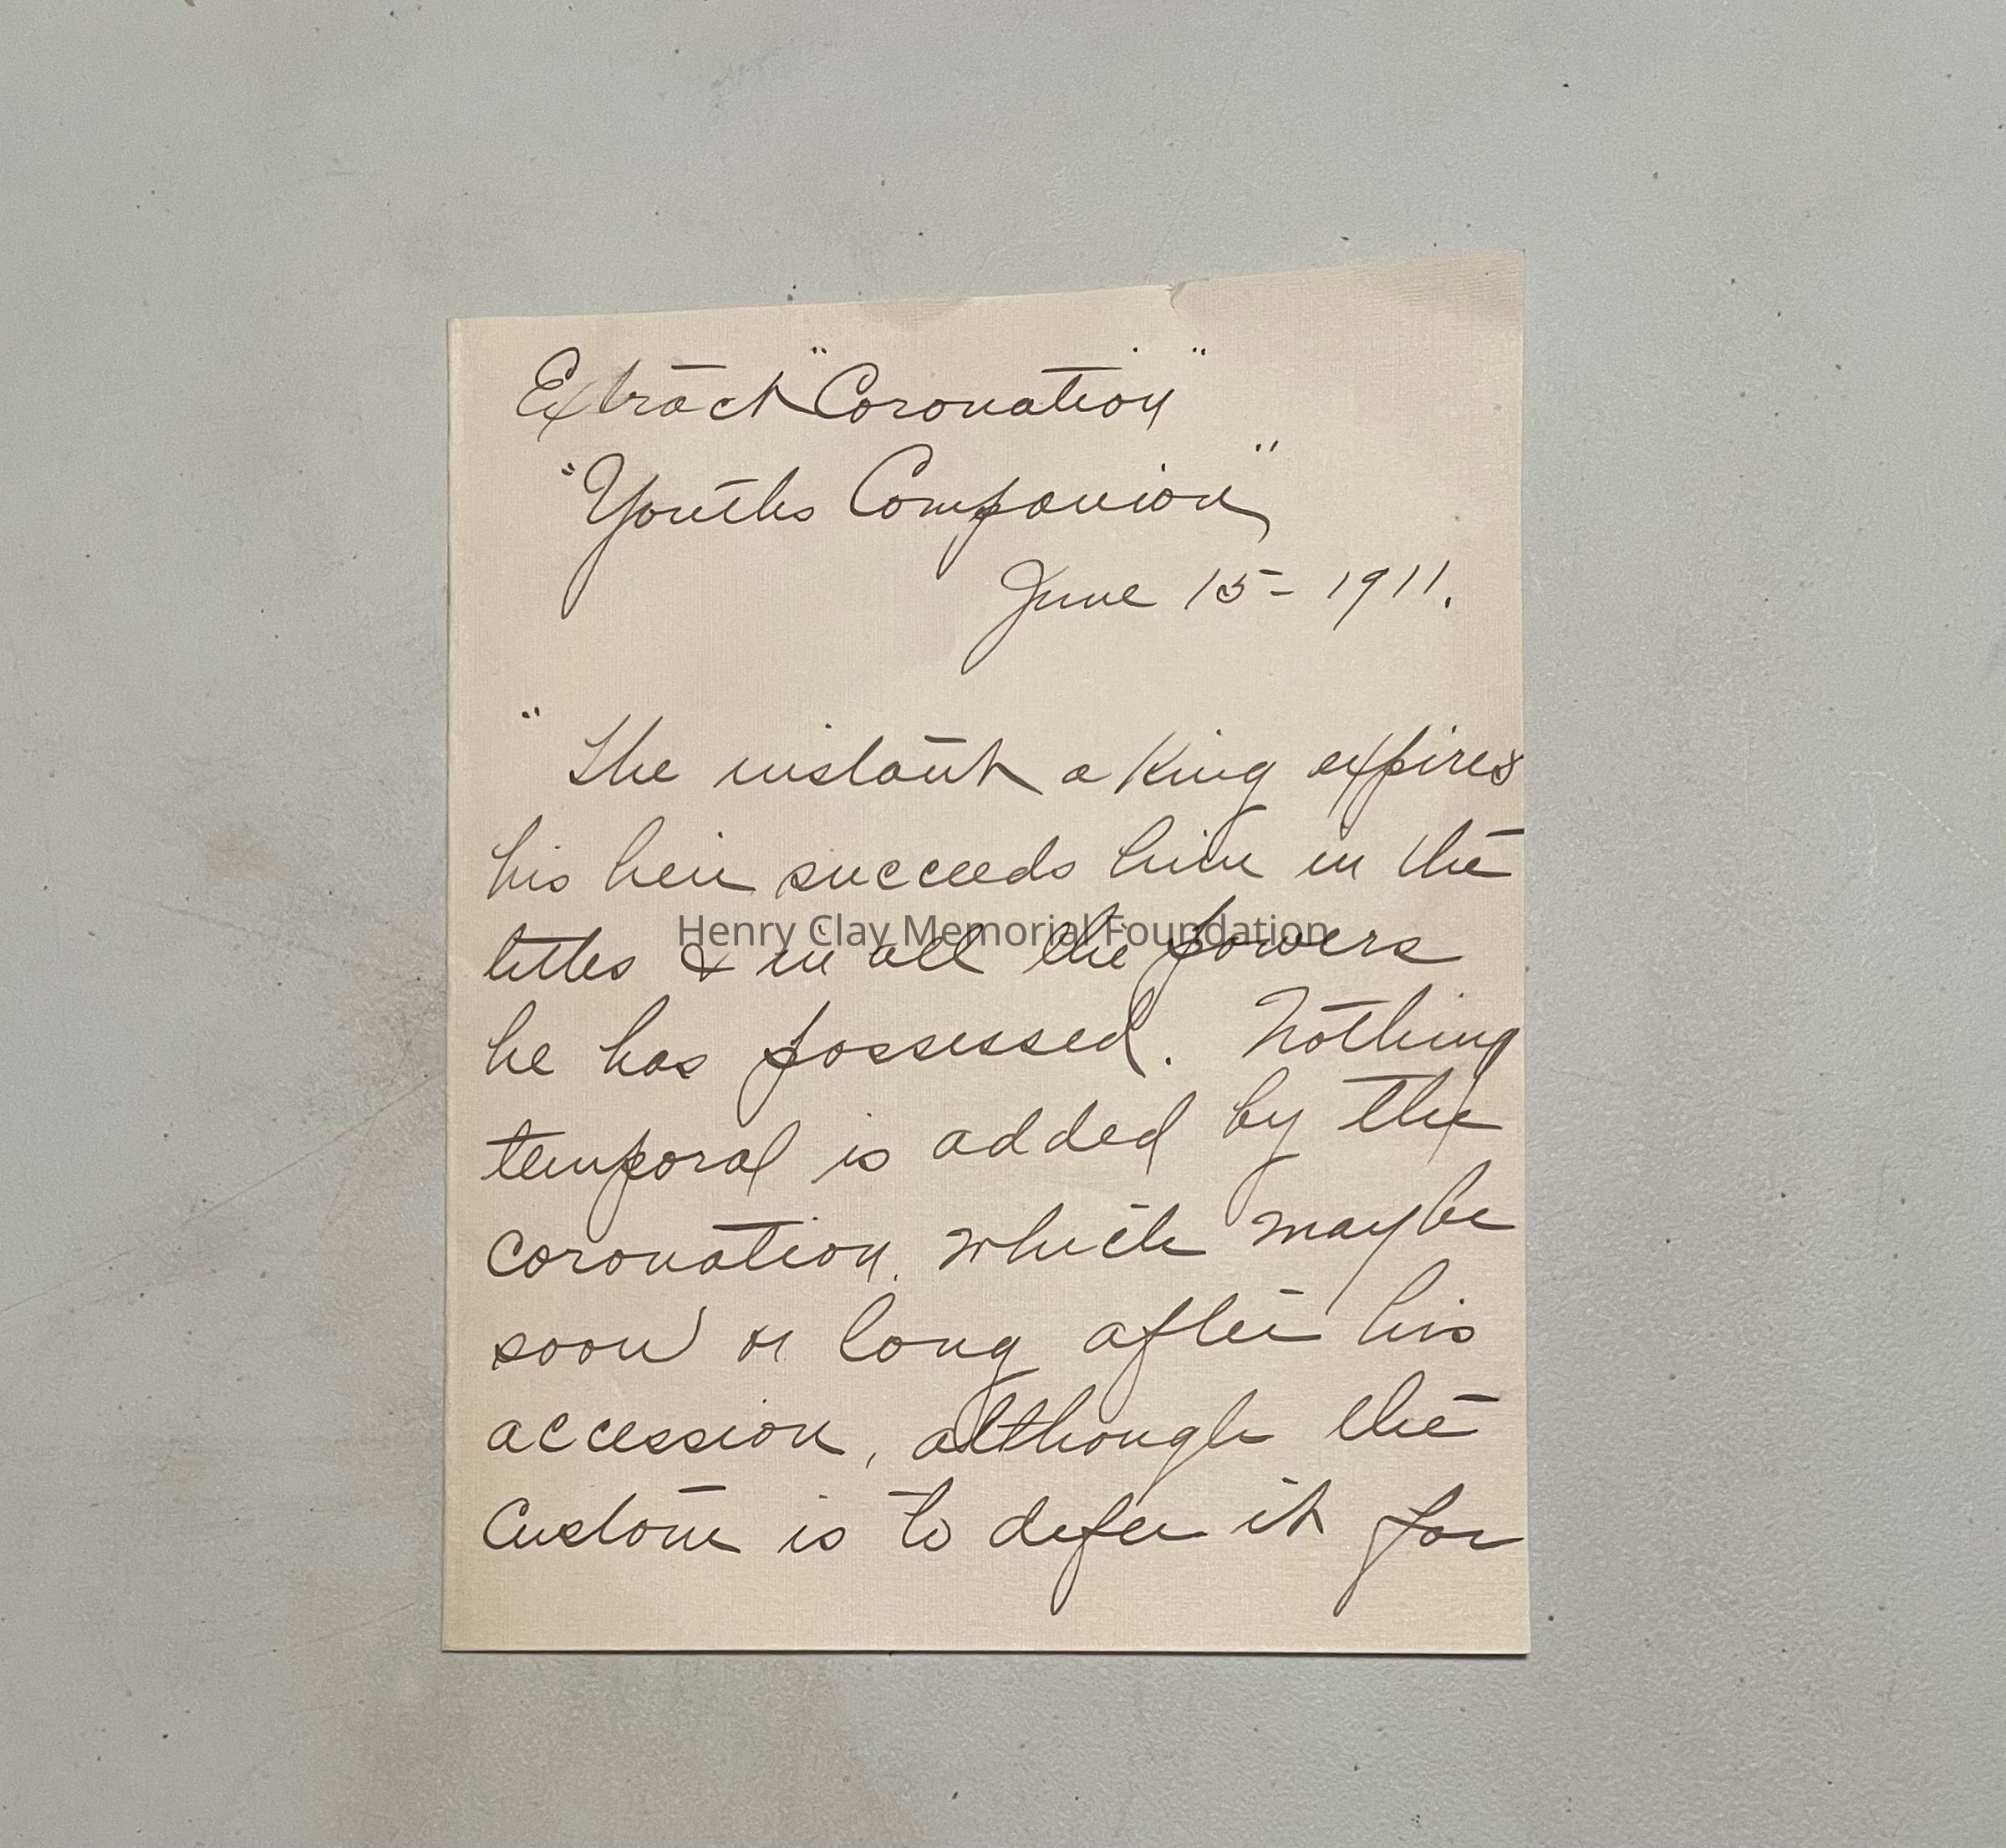 Extract "Coronation"
"Youths Companion"
June 15 - 1911.
" The instant a King expires
his heir succeeds him in the
titles & in all the powers
Henry Clay Memorial Foundation
he has possessed. Nothing
temporal is added by the
coronation, which may be
soon or long after his
accession, although the
Custom is to defer it for